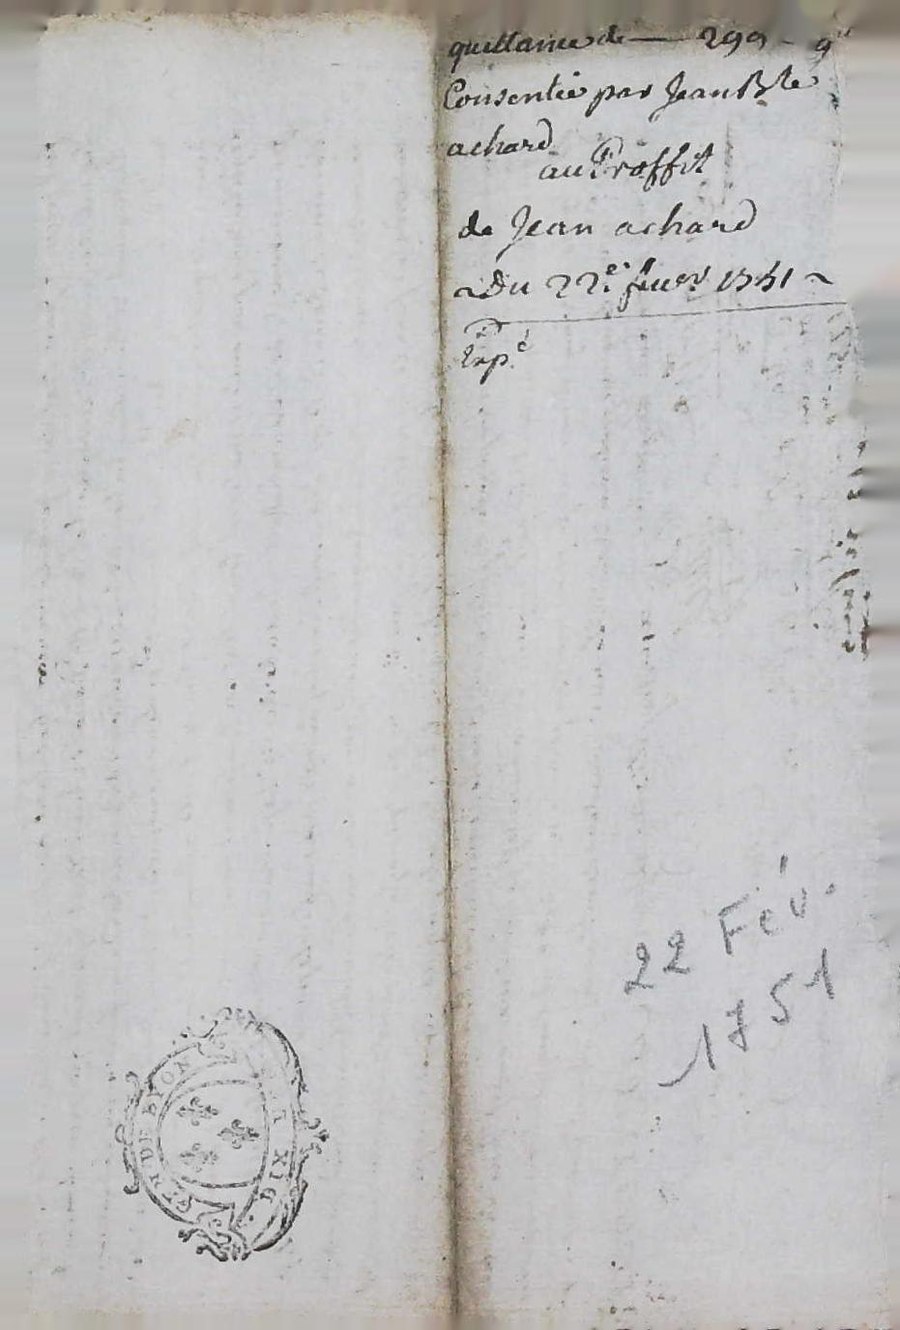 quittance de — 299 - 9
Consentie par Jean Bte
achard
au Proffit
de Jean achard
Du 22e feuer 1751
Expé
22 Fév.
1751
GEN DE LYON
SIX